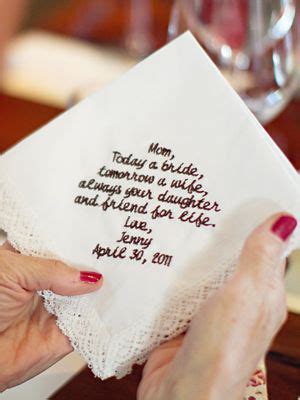 Mom,
Today a bride,
tomorrow a wife,
always your daughter
and friend for life.
Love,
Jenny
April 30, 2011